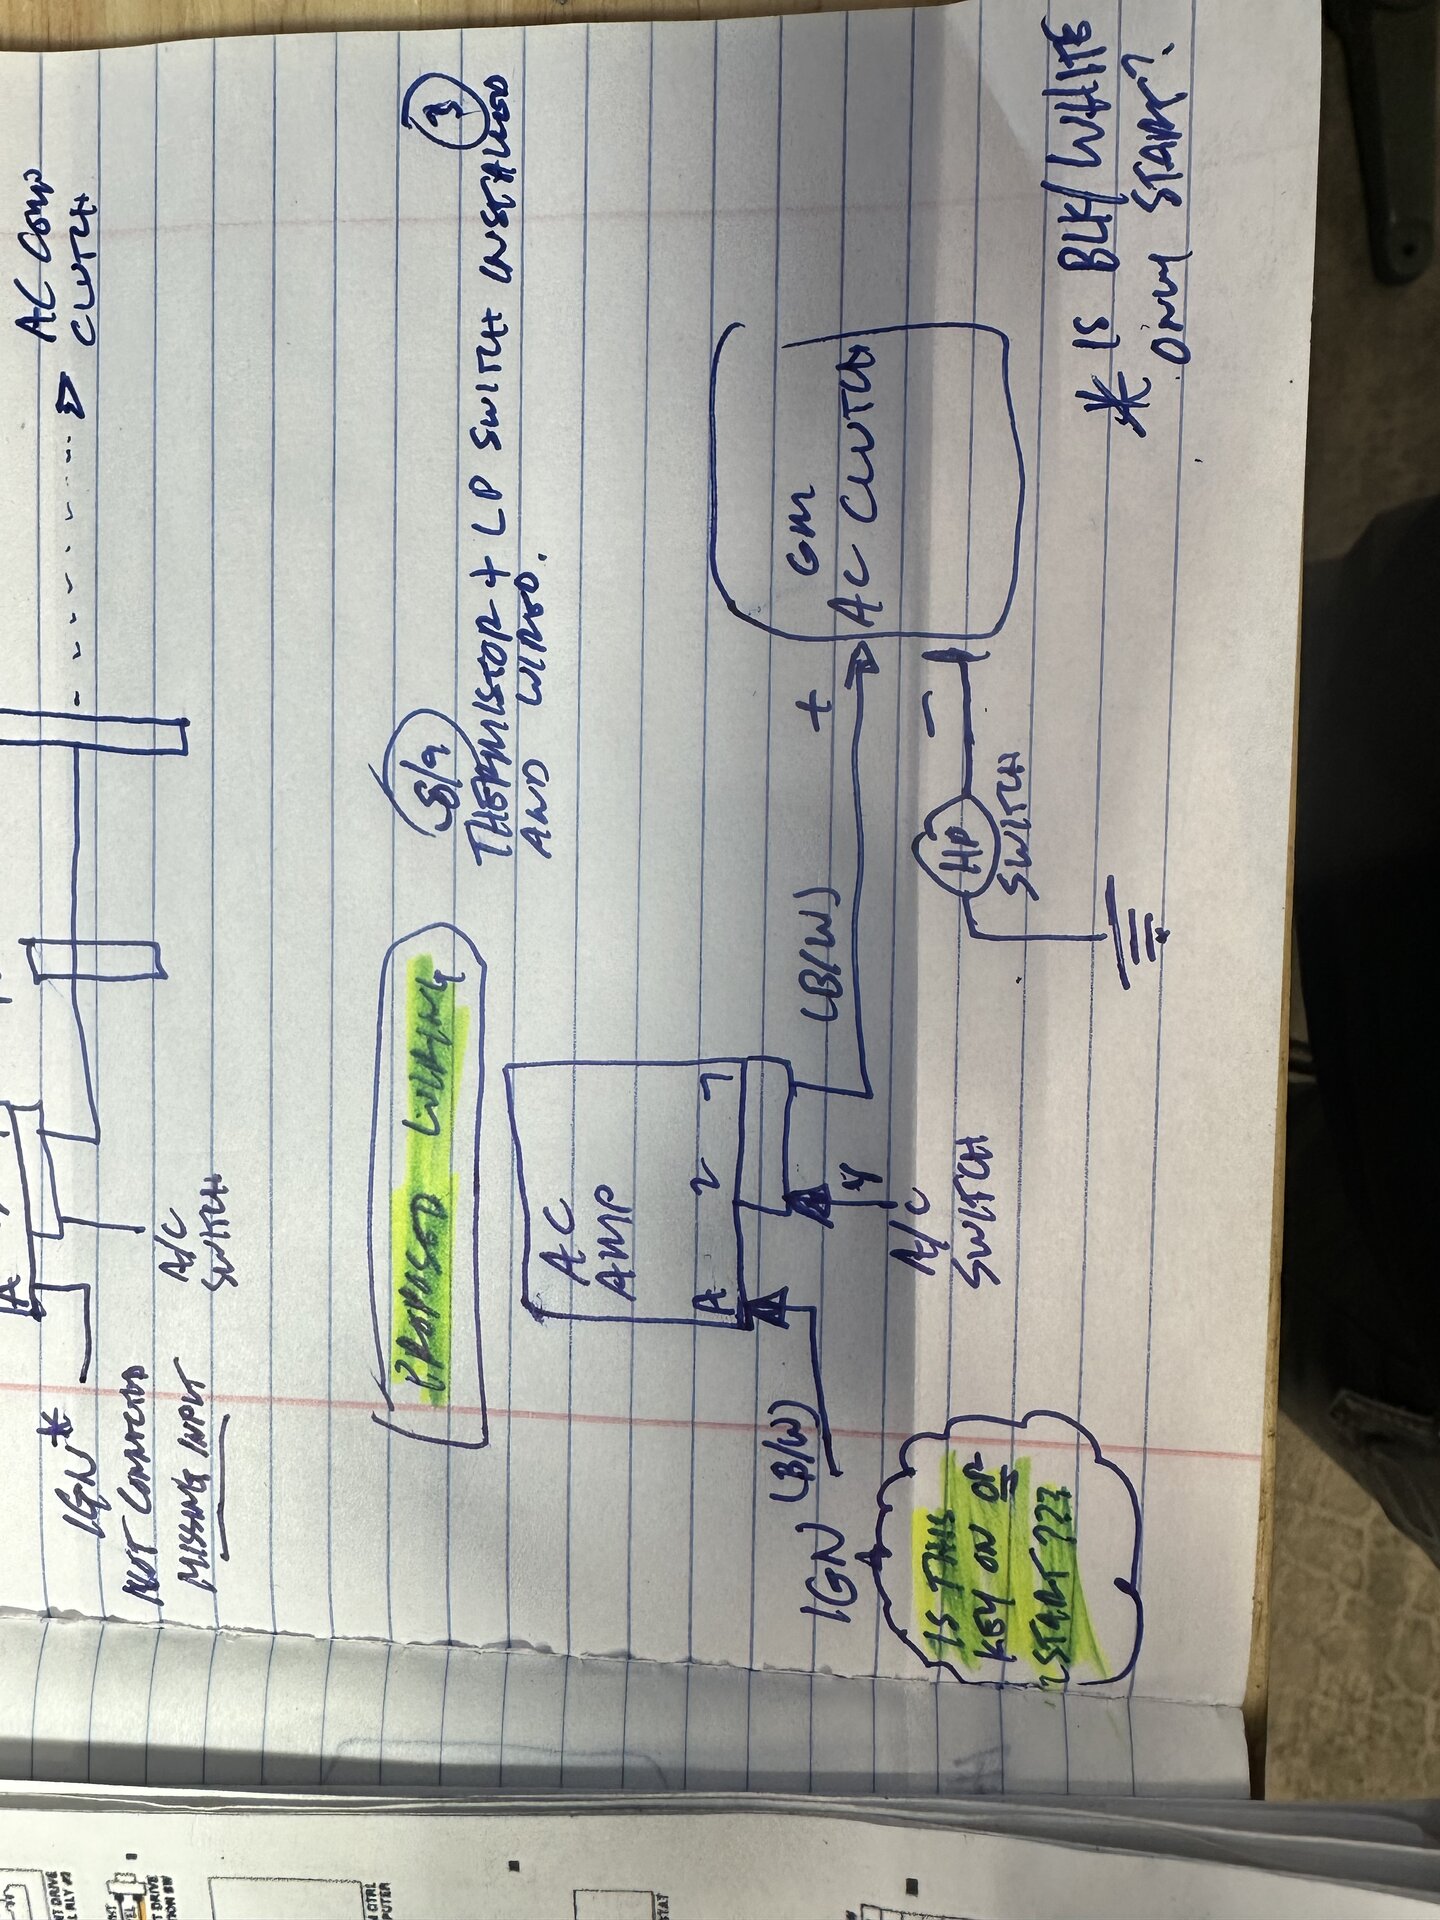 AC COMP
CLUTCH
A
IGN*
NOT CONNECTED
MISSING INPUT
A/C
SWITCH
PROPOSED WIRING
8/9
3
THERMISTOR + LP SWITCH INSTALLED
AND WIRED.
AC
AMP
A 2 7
4
IGN (B/W)
(B/W)
+
GM
AC CLUTCH
A/C
SWITCH
HP
SWITCH
-
IS THIS
KEY ON OR
START???
* IS BLK/WHITE
ONLY START?